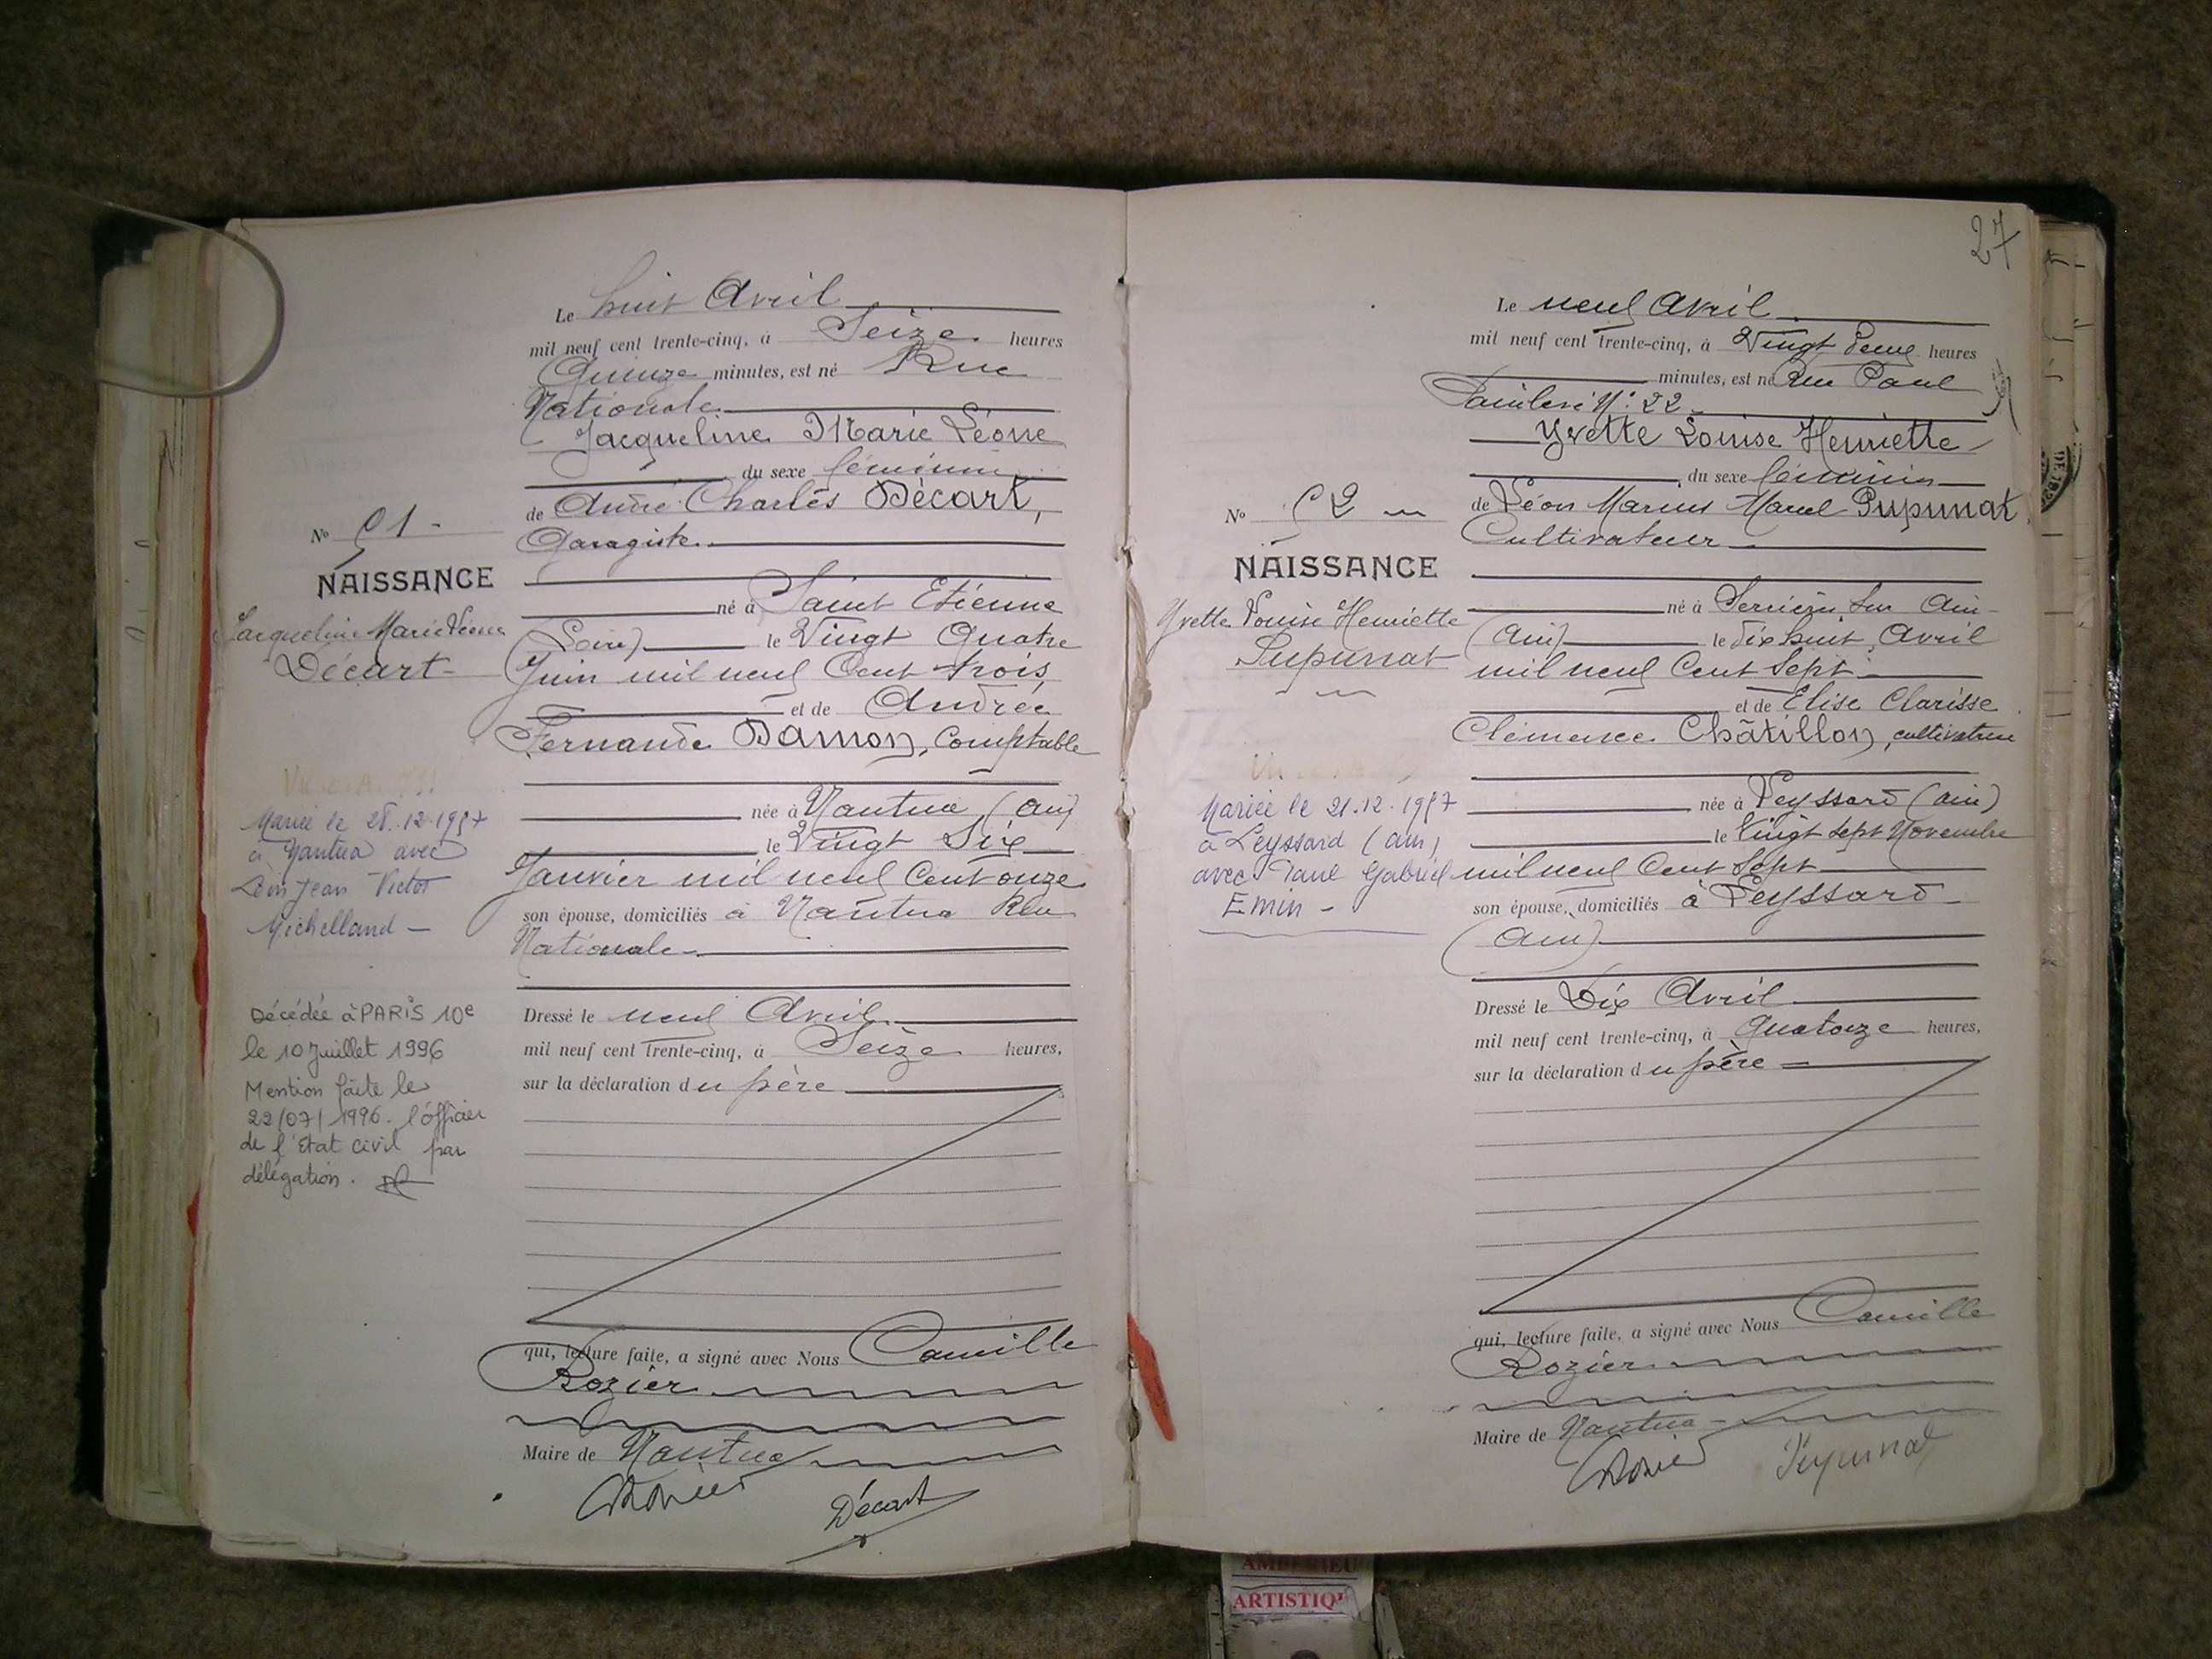 Le huit Avril
mil neuf cent trente-cinq, à Seize heures
Quinze minutes, est né Rue
Nationale.
Jacqueline Marie Léone
du sexe féminin
de André Charles Décart,
Garagiste.
né à Saint Etienne
(Loire) le Vingt Quatre
Juin mil neuf Cent trois
et de Andrée
Fernande Damon, Comptable
née à Nantua (Ain)
le Vingt Six
Janvier mil neuf Cent onze
son épouse, domiciliés à Nantua Rue
Nationale
Dressé le neuf Avril
mil neuf cent trente-cinq, à Seize heures,
sur la déclaration du père
qui, lecture faite, a signé avec Nous Camille
Rozier
Maire de Nantua
Décart
No 51.
NAISSANCE
Jacqueline Marie Léone
Décart
Mariée le 28.12.1957
à Nantua avec
Jean Victor
Michelland
Décédée à PARIS 10e
le 10 Juillet 1996
Mention faite le
22/07/1996. l'officier
de l'Etat civil par
délégation.
27
Le neuf Avril
mil neuf cent trente-cinq, à Vingt deux heures
minutes, est né Rue Paul
Painlevé No: 22
Yvette Louise Henriette
du sexe féminin
de Léon Marius Marcel Pupunat
Cultivateur
né à Serrières sur Ain
(Ain) le dix huit Avril
mil neuf Cent Sept
et de Elise Clarisse
Clémence Châtillon, cultivatrice
née à Leyssard (Ain)
le Vingt Sept Novembre
mil neuf Cent Sept
son épouse, domiciliés à Leyssard
(Ain)
Dressé le Dix Avril
mil neuf cent trente-cinq, à Quatorze heures,
sur la déclaration du père
qui, lecture faite, a signé avec Nous Camille
Rozier
Maire de Nantua
Pupunat
No 52
NAISSANCE
Yvette Louise Henriette
Pupunat
Mariée le 21.12.1957
à Leyssard (Ain)
avec Paul Gabriel
Emin
AMBERIEU
ARTISTIQ